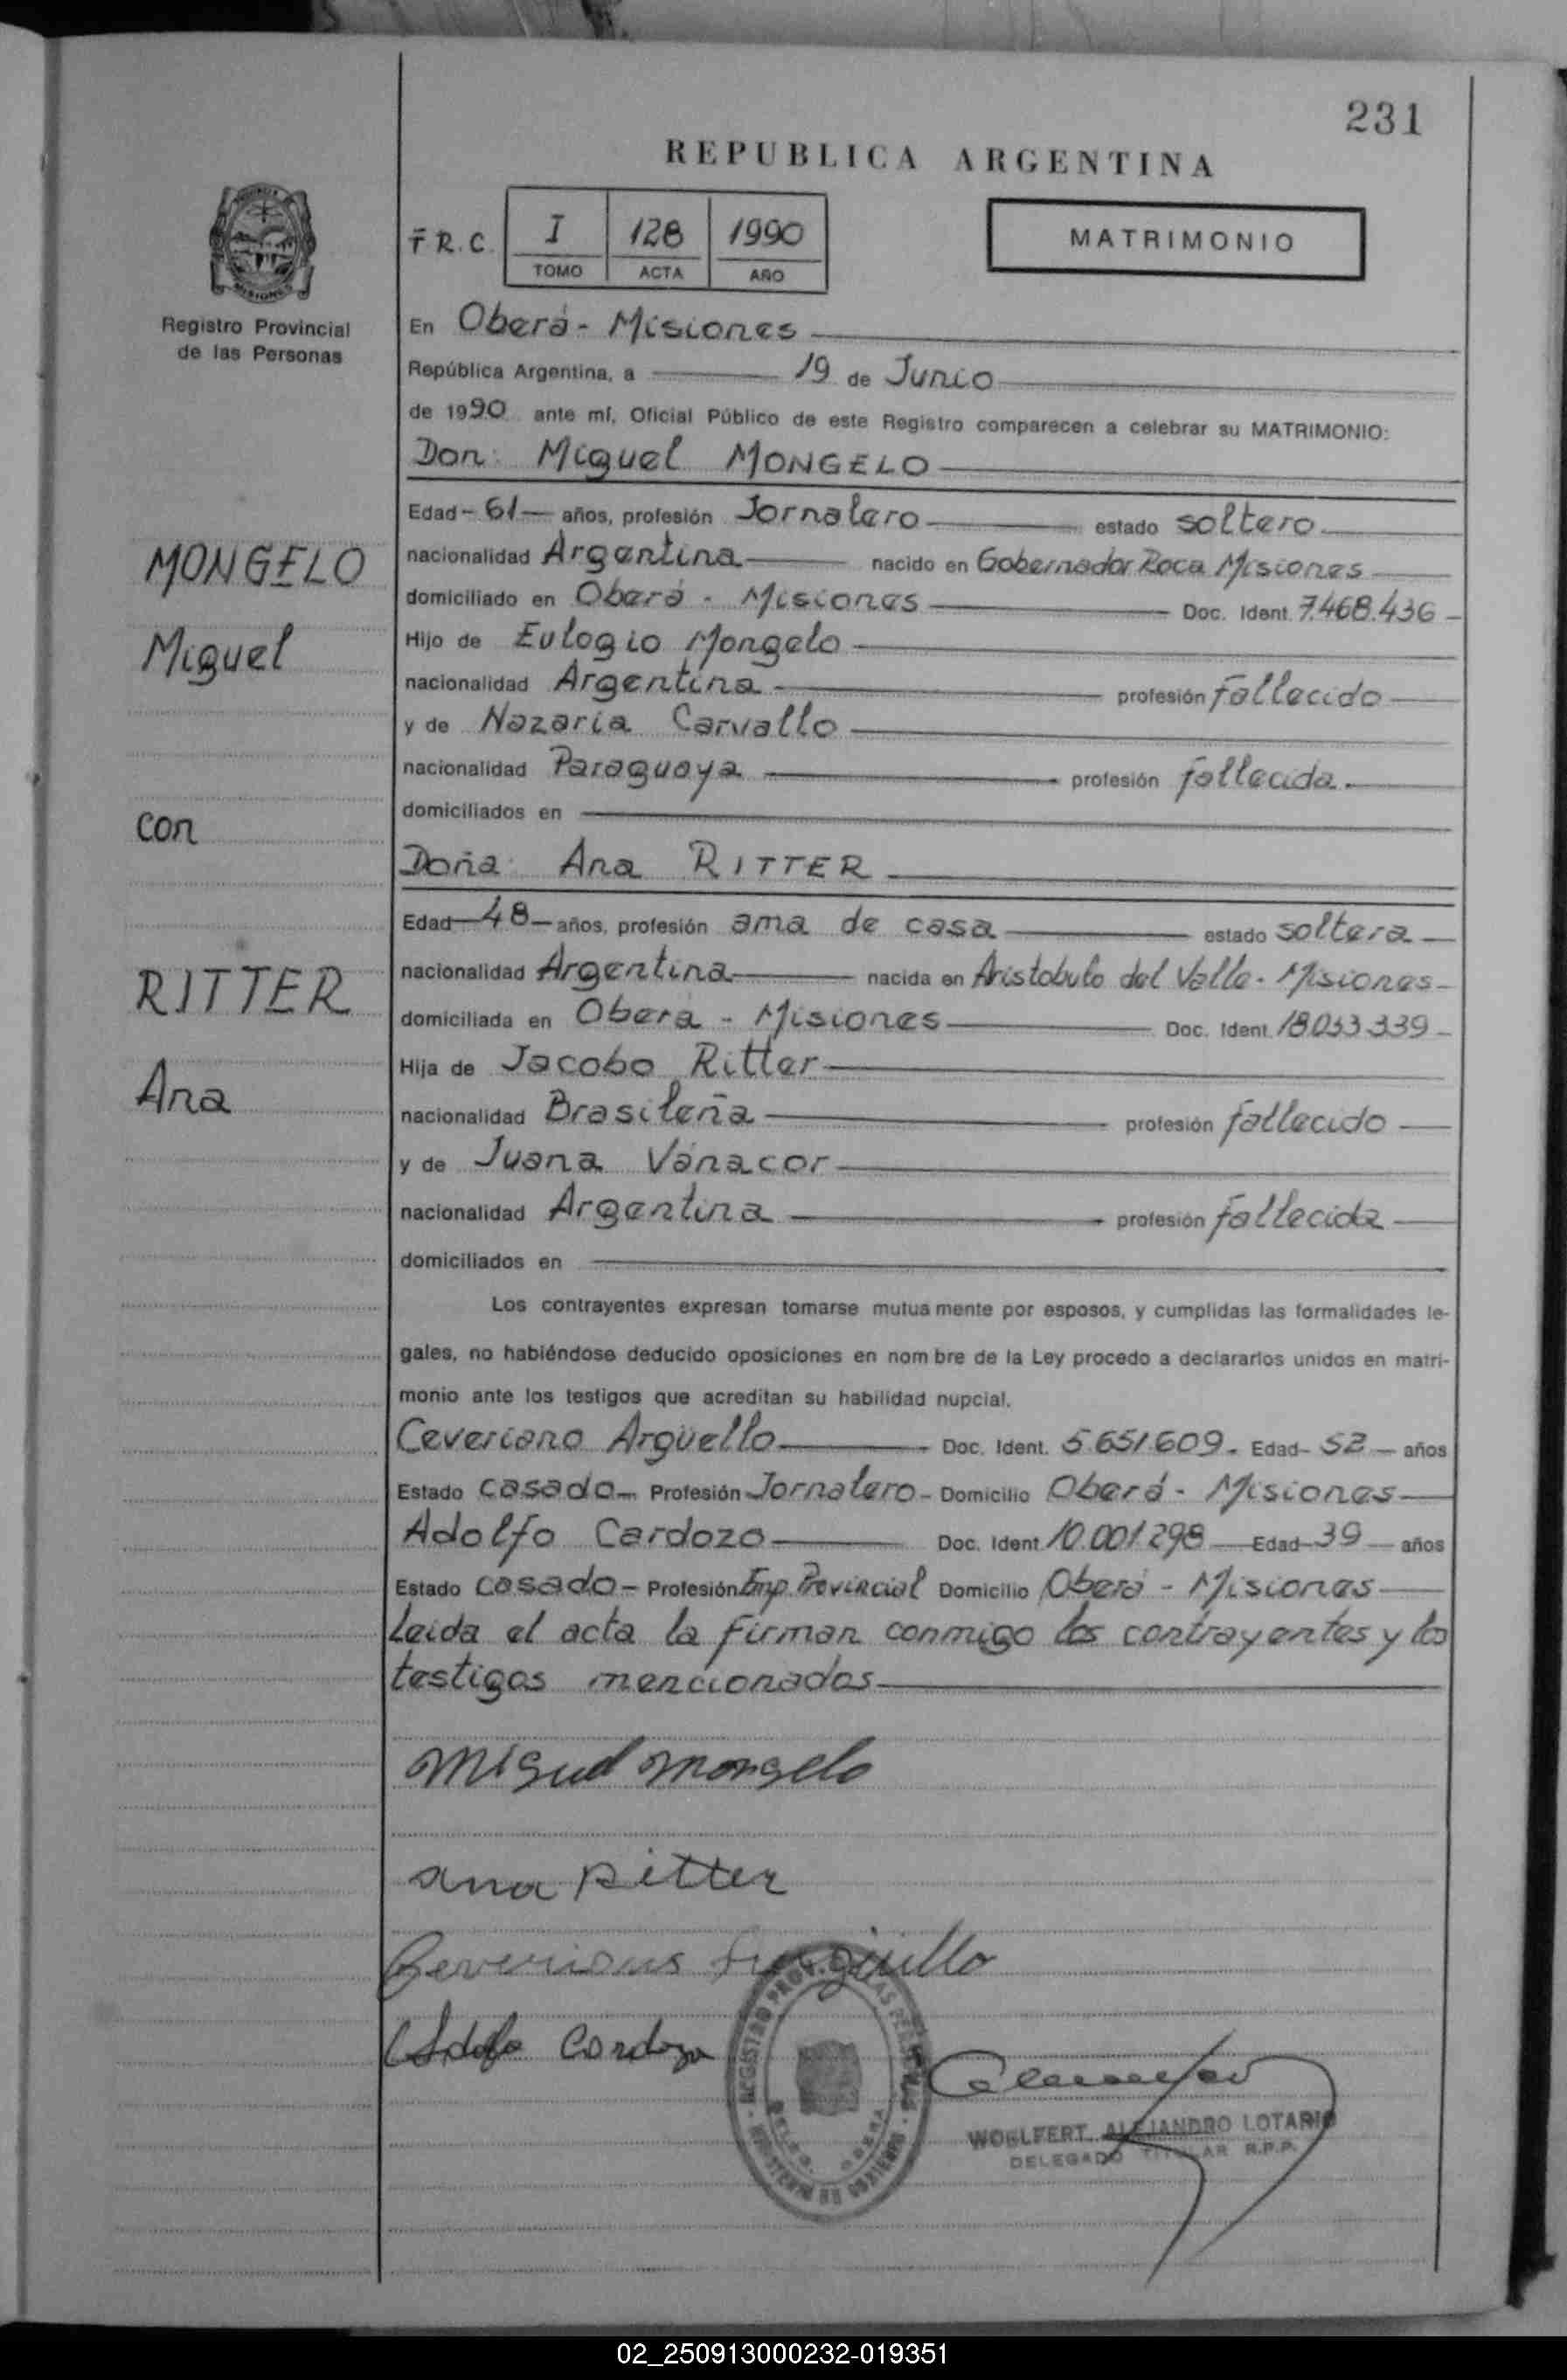 231
REPUBLICA ARGENTINA
T R.C. I 128 1990
TOMO ACTA AÑO
MATRIMONIO
PROVINCIA
MISIONES
Registro Provincial
de las Personas
En Oberá - Misiones
República Argentina, a 19 de Junio
de 1990 ante mí, Oficial Público de este Registro comparecen a celebrar su MATRIMONIO:
Don: Miguel MONGELO
Edad - 61 - años, profesión Jornalero estado soltero
nacionalidad Argentina nacido en Gobernador Roca Misiones
domiciliado en Oberá - Misiones Doc. Ident. 7.468.436
Hijo de Eulogio Mongelo
nacionalidad Argentina profesión fallecido
y de Nazaria Carvallo
nacionalidad Paraguaya profesión fallecida
domiciliados en
Doña: Ana RITTER
Edad 48 años, profesión ama de casa estado soltera
nacionalidad Argentina nacida en Aristobulo del Valle - Misiones
domiciliada en Oberá - Misiones Doc. Ident. 18.033.339
Hija de Jacobo Ritter
nacionalidad Brasileña profesión fallecido
y de Juana Vánacor
nacionalidad Argentina profesión fallecida
domiciliados en
MONGELO
Miguel
con
RITTER
Ana
Los contrayentes expresan tomarse mutua mente por esposos, y cumplidas las formalidades le-
gales, no habiéndose deducido oposiciones en nom bre de la Ley procedo a declararlos unidos en matri-
monio ante los testigos que acreditan su habilidad nupcial.
Ceveriano Argüello Doc. Ident. 5.651.609. Edad - 52 - años
Estado casado - Profesión Jornalero - Domicilio Oberá - Misiones
Adolfo Cardozo Doc. Ident 10.001.298 Edad 39 años
Estado casado - Profesión Emp. Provincial Domicilio Oberá - Misiones
Leida el acta la firman conmigo los contrayentes y los
testigos mencionados
Miguel Mongelo
ana Ritter
Ceveriano Argüello
Adolfo Cardozo
WOELFERT ALEJANDRO LOTARIO
DELEGADO TITULAR R.P.P.
02_250913000232-019351